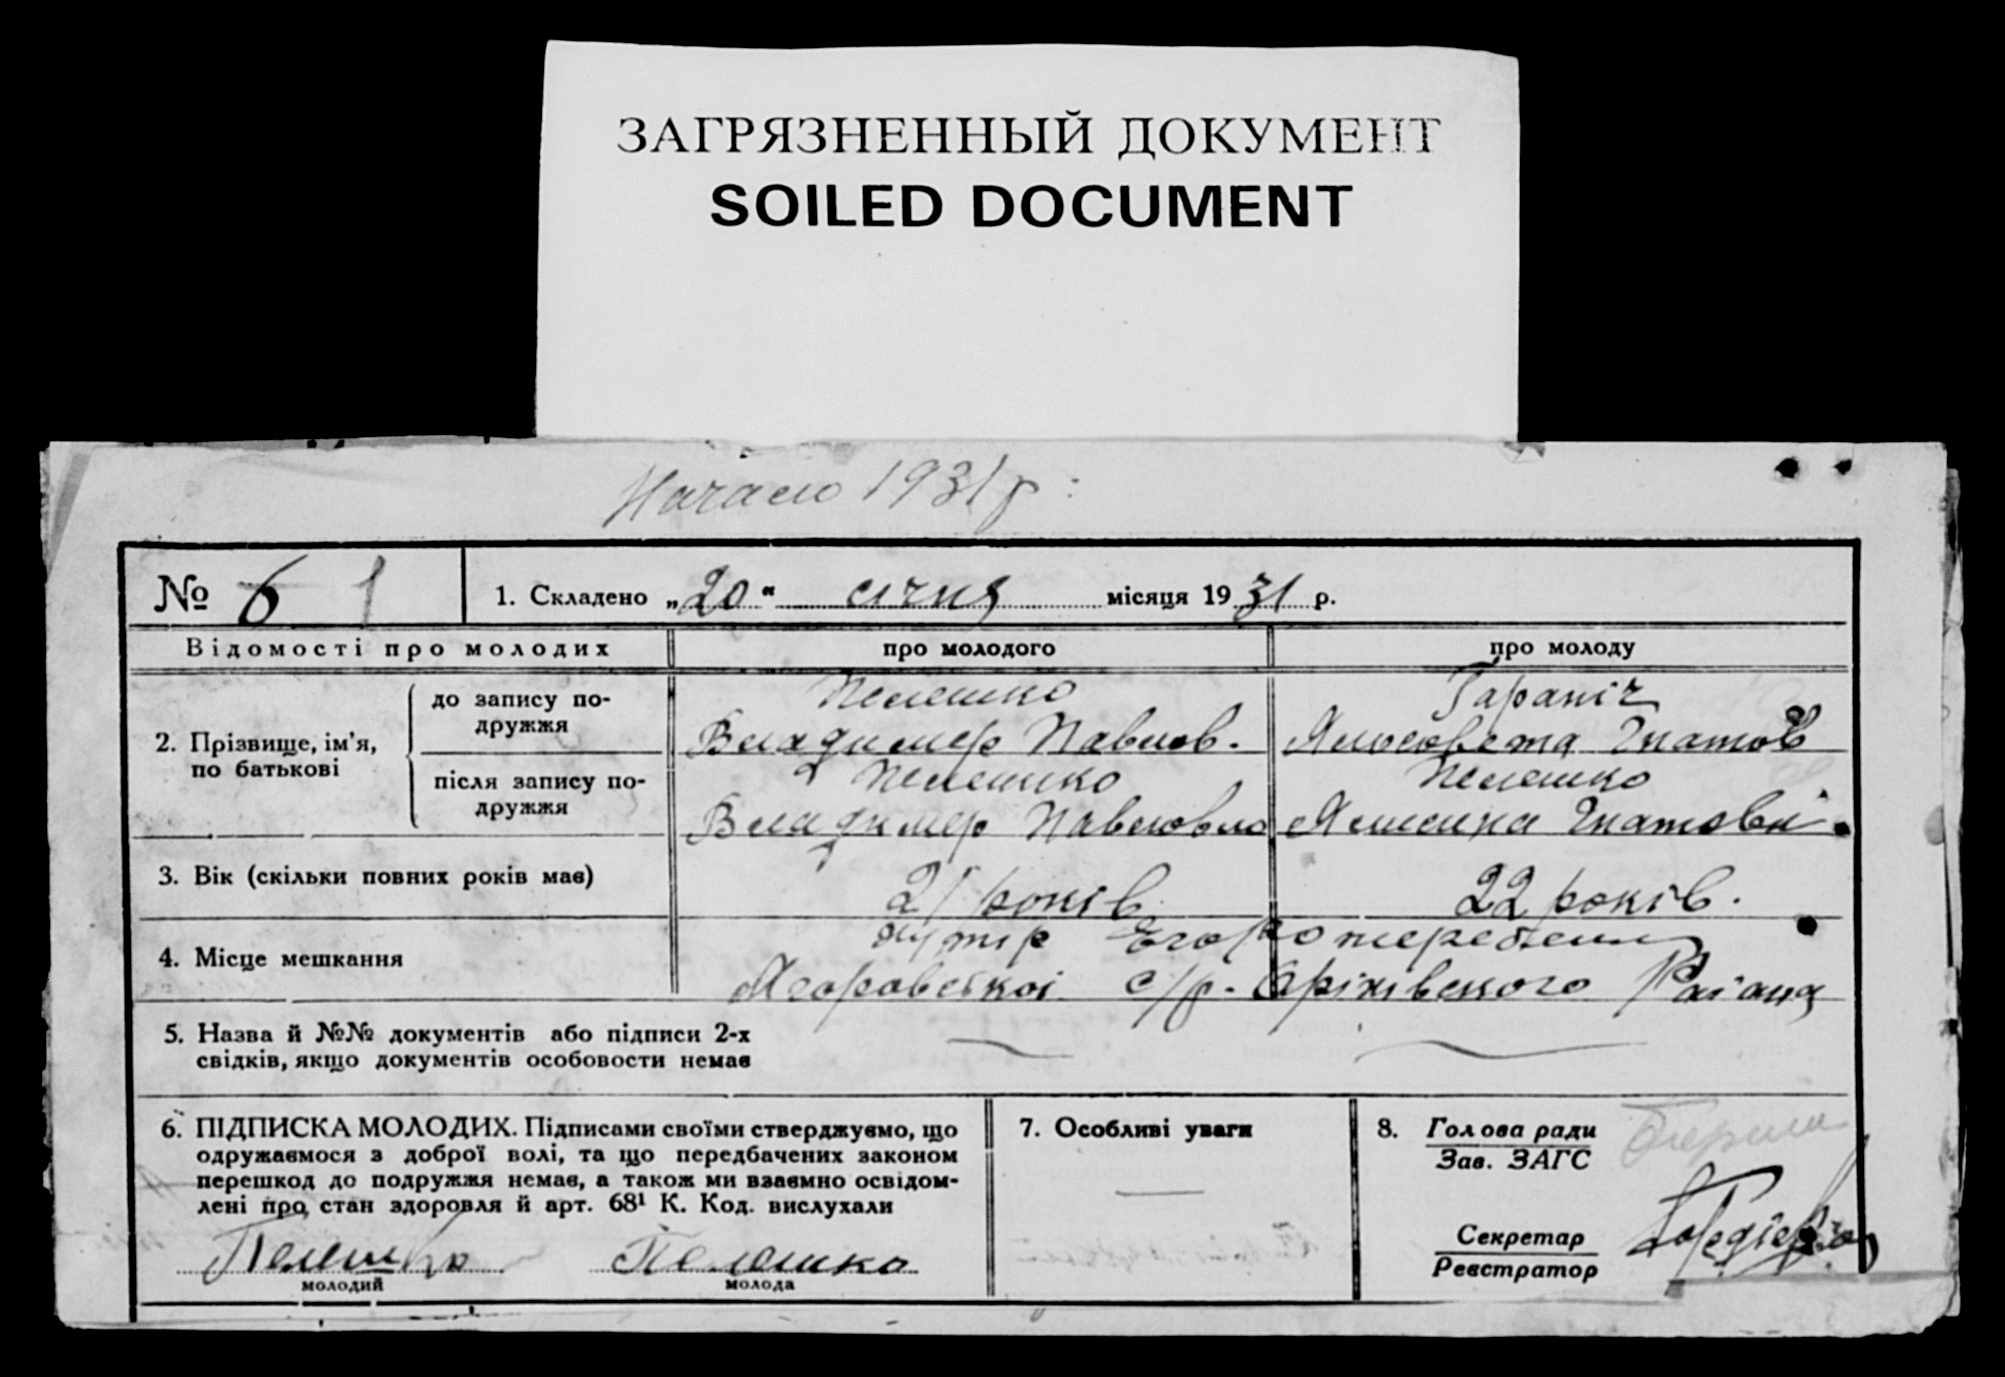 ЗАГРЯЗНЕННЫЙ ДОКУМЕНТ
SOILED DOCUMENT
Начало 1931 р:
№ 6 1
1. Складено „20“ січня місяця 1931 р.
Відомості про молодих
про молодого
про молоду
2. Прізвище, ім’я, по батькові
до запису по-
дружжя
Пелешко
Владимер Павлов.
Гарапіч
Гнатов
після запису по-
дружжя
Пелешко
Владимер Павлов
Пелешко
Гнатовн
3. Вік (скільки повних років має)
21 років
22 років.
4. Місце мешкання
хутір
с/р. Оріхівського Раіона
5. Назва й №№ документів або підписи 2-х
свідків, якщо документів особовости немає
6. ПІДПИСКА МОЛОДИХ. Підписами своїми стверджуємо, що
одружаємося з доброї волі, та що передбачених законом
перешкод до подружжя немає, а також ми взаємно освідом-
лені про стан здоровля й арт. 68¹ К. Код. вислухали
Пелешко
молодий
Пелешко
молода
7. Особливі уваги
8. Голова ради
Зав. ЗАГС
Секретар
Реєстратор